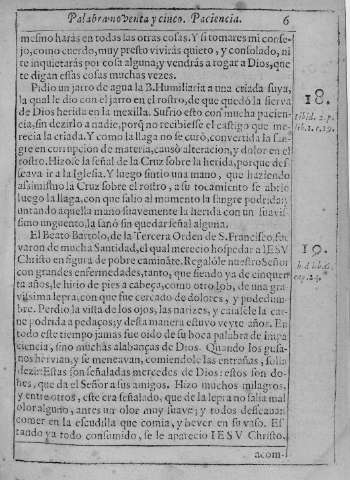 Palabra noventa y cinco. Paciencia. 6
mesmo harás en todas las otras cosas. Y si tomares mi conse-
jo, como cuerdo, muy presto vivirás quieto, y consolado, ni
te inquietarás por cosa alguna, y vendrás a rogar a Dios, que
te digan essas cosas muchas vezes.
Pidio un jarro de agua la B. Humiliaria a una criada suya,
la qual le dio con el jarro en el rostro, de que quedò la sierva
de Dios herida en la mexilla. Sufrio esto con mucha pacien-
cia, sin dezirlo a nadie, porq̃ no recibiesse el castigo que me-
recia la criada. Y como la llaga no se curò, convertida la san-
gre en corrupcion de materia, causò alteracion, y dolor en el
rostro. Hizose la señal de la Cruz sobre la herida, porque des-
seava ir a la Iglesia. Y luego sintio una mano, que haziendo
assimismo la Cruz sobre el rostro, a su tocamiento se abrio
luego la llaga, con que salio al momento la sangre podrida; y
untando aquella mano suavemente la herida con un suavis-
simo unguento, la sanò sin quedar señal alguna.
El Beato Bartolo, de la Tercera Orden de S. Francisco, fue
varon de mucha Santidad, el qual merecio hospedar a IESV
Christo en figura de pobre caminãte. Regalóle nuestro Señor
con grandes enfermedades, tanto, que siendo ya de cinquen-
ta años, le hirio de pies a cabeça, como otro Iob, de una gra-
vissima lepra, con que fue cercado de dolores, y podedum-
bre. Perdio la vista de los ojos, las narizes, y caiasele la car-
ne podrida a pedaços; y desta manera estuvo veyte años. En
todo este tiempo jamas fue oido de su boca palabra de impa-
ciencia, sino muchas alabanças de Dios. Quando los gusa-
nos hervian, y se meneavan, comiendole las entrañas, solia
dezir: Estas son señaladas mercedes de Dios: estos son do-
nes, que da el Señor a sus amigos. Hizo muchos milagros,
y entre otros, este era señalado, que de la lepra no salia mal
olor alguno, antes un olor muy suave; y todos desseavan
comer en la escudilla que comia, y bever en su vaso. Es
tando ya todo consumido, se le aparecio IESV Christo,
acom-
18.
Ibid. 2. p.
lib. 1. c. 19.
19.